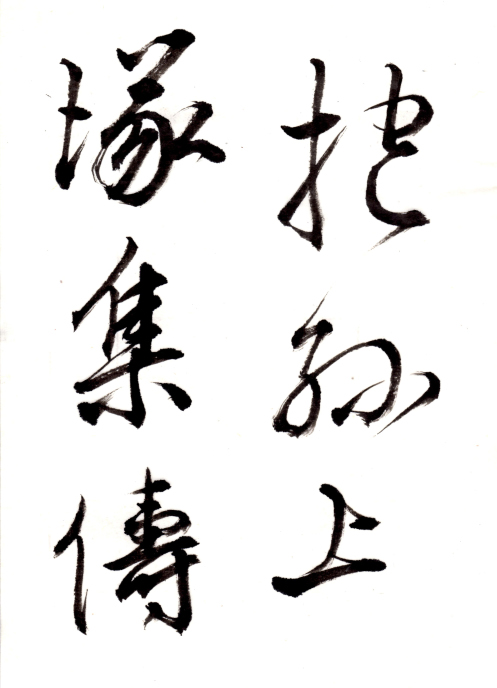 抱孙上
塚集傳